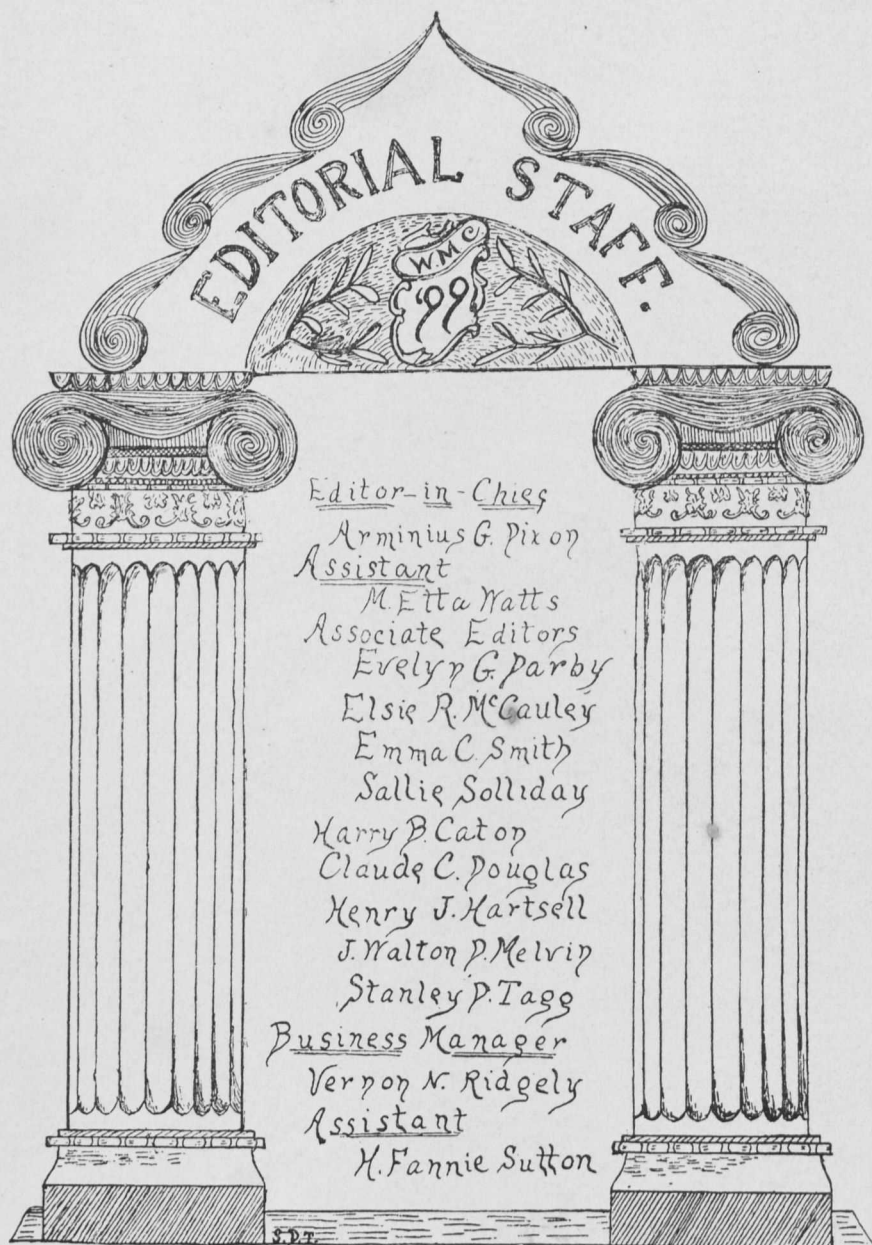 EDITORIAL STAFF.
WMC
'99
Editor-in-Chief
Arminius G. Dixon
Assistant
M. Etta Watts
Associate Editors
Evelyn G. Darby
Elsie R. McCauley
Emma C. Smith
Sallie Solliday
Harry B. Caton
Claude C. Douglas
Henry J. Hartsell
J. Walton D. Melvin
Stanley D. Tagg
Business Manager
Vernon N. Ridgely
Assistant
H. Fannie Sutton
S.D.T.